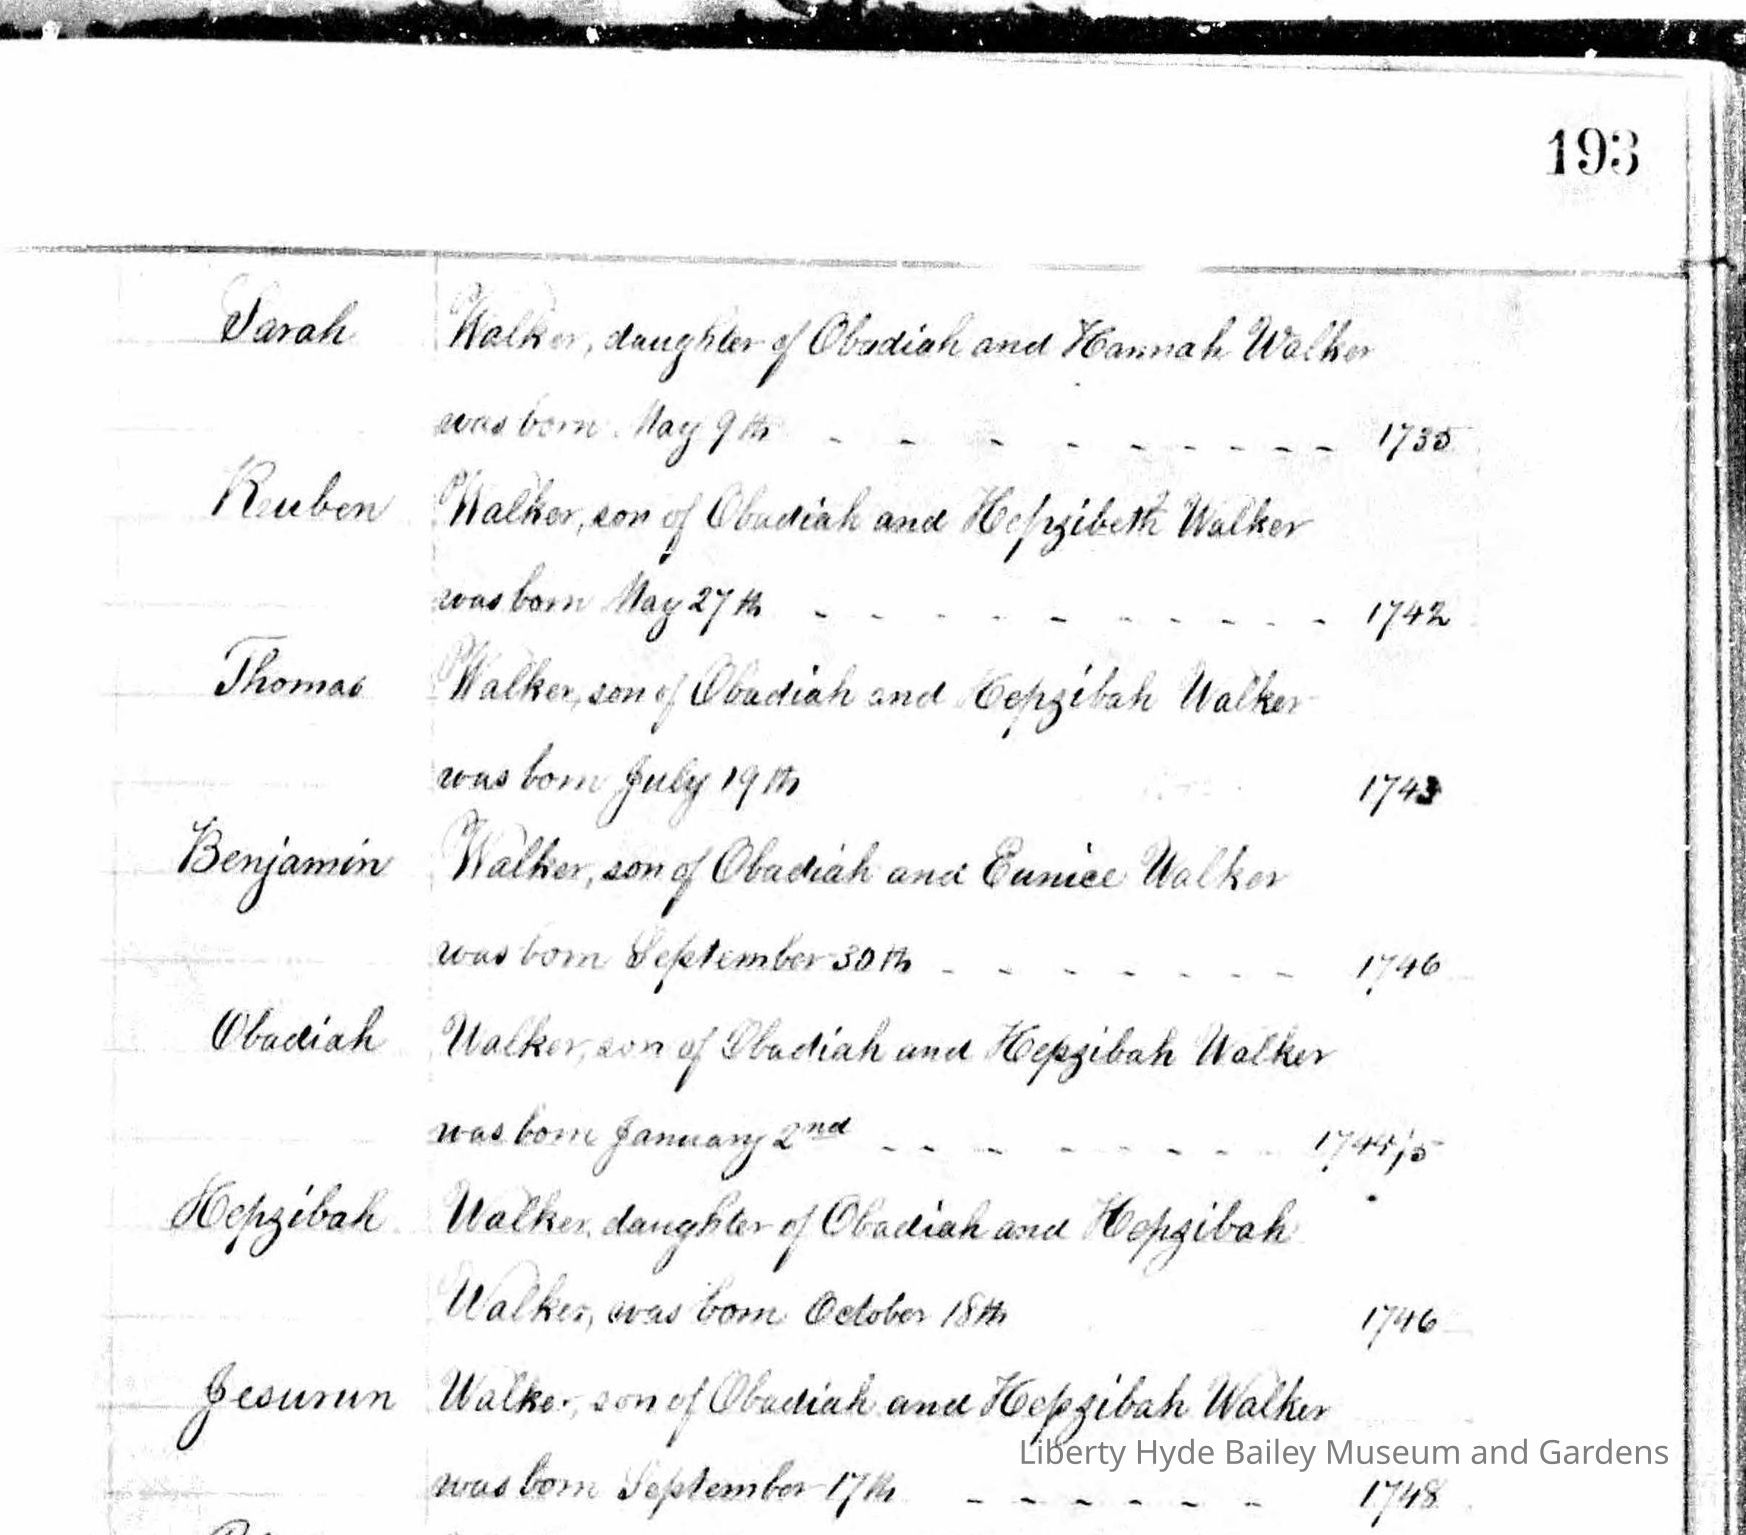 193
Sarah Walker, daughter of Obadiah and Hannah Walker
was born May 9th - - - - - - - - - - 1735
Reuben Walker, son of Obadiah and Hepzibeth Walker
was born May 27th - - - - - - - - - - 1742
Thomas Walker, son of Obadiah and Hepzibah Walker
was born July 19th 1743
Benjamin Walker, son of Obadiah and Eunice Walker
was born September 30th - - - - - - - - 1746
Obadiah Walker, son of Obadiah and Hepzibah Walker
was born January 2nd - - - - - - - - - 1744/5
Hepzibah Walker, daughter of Obadiah and Hepzibah
Walker, was born October 18th 1746
Jesurun Walker, son of Obadiah and Hepzibah Walker
Liberty Hyde Bailey Museum and Gardens
was born September 17th - - - - - - 1748